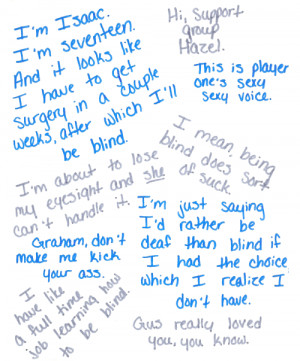 I'm Isaac.
I'm seventeen.
And it looks like
I have to get
surgery in a couple
weeks, after which I'll
be blind.
Hi, Support
group
Hazel.
This is player
one's sexy
sexy voice.
I mean, being
blind does sort
of suck.
I'm about to lose
my eyesight and she
can't handle it.
I'm just saying
I'd rather be
deaf than blind if
I had the choice
which I realize I
don't have.
Graham, don't
make me kick
your ass.
I
have like
a full time
job learning how
to be blind.
Gus really loved
you, you know.